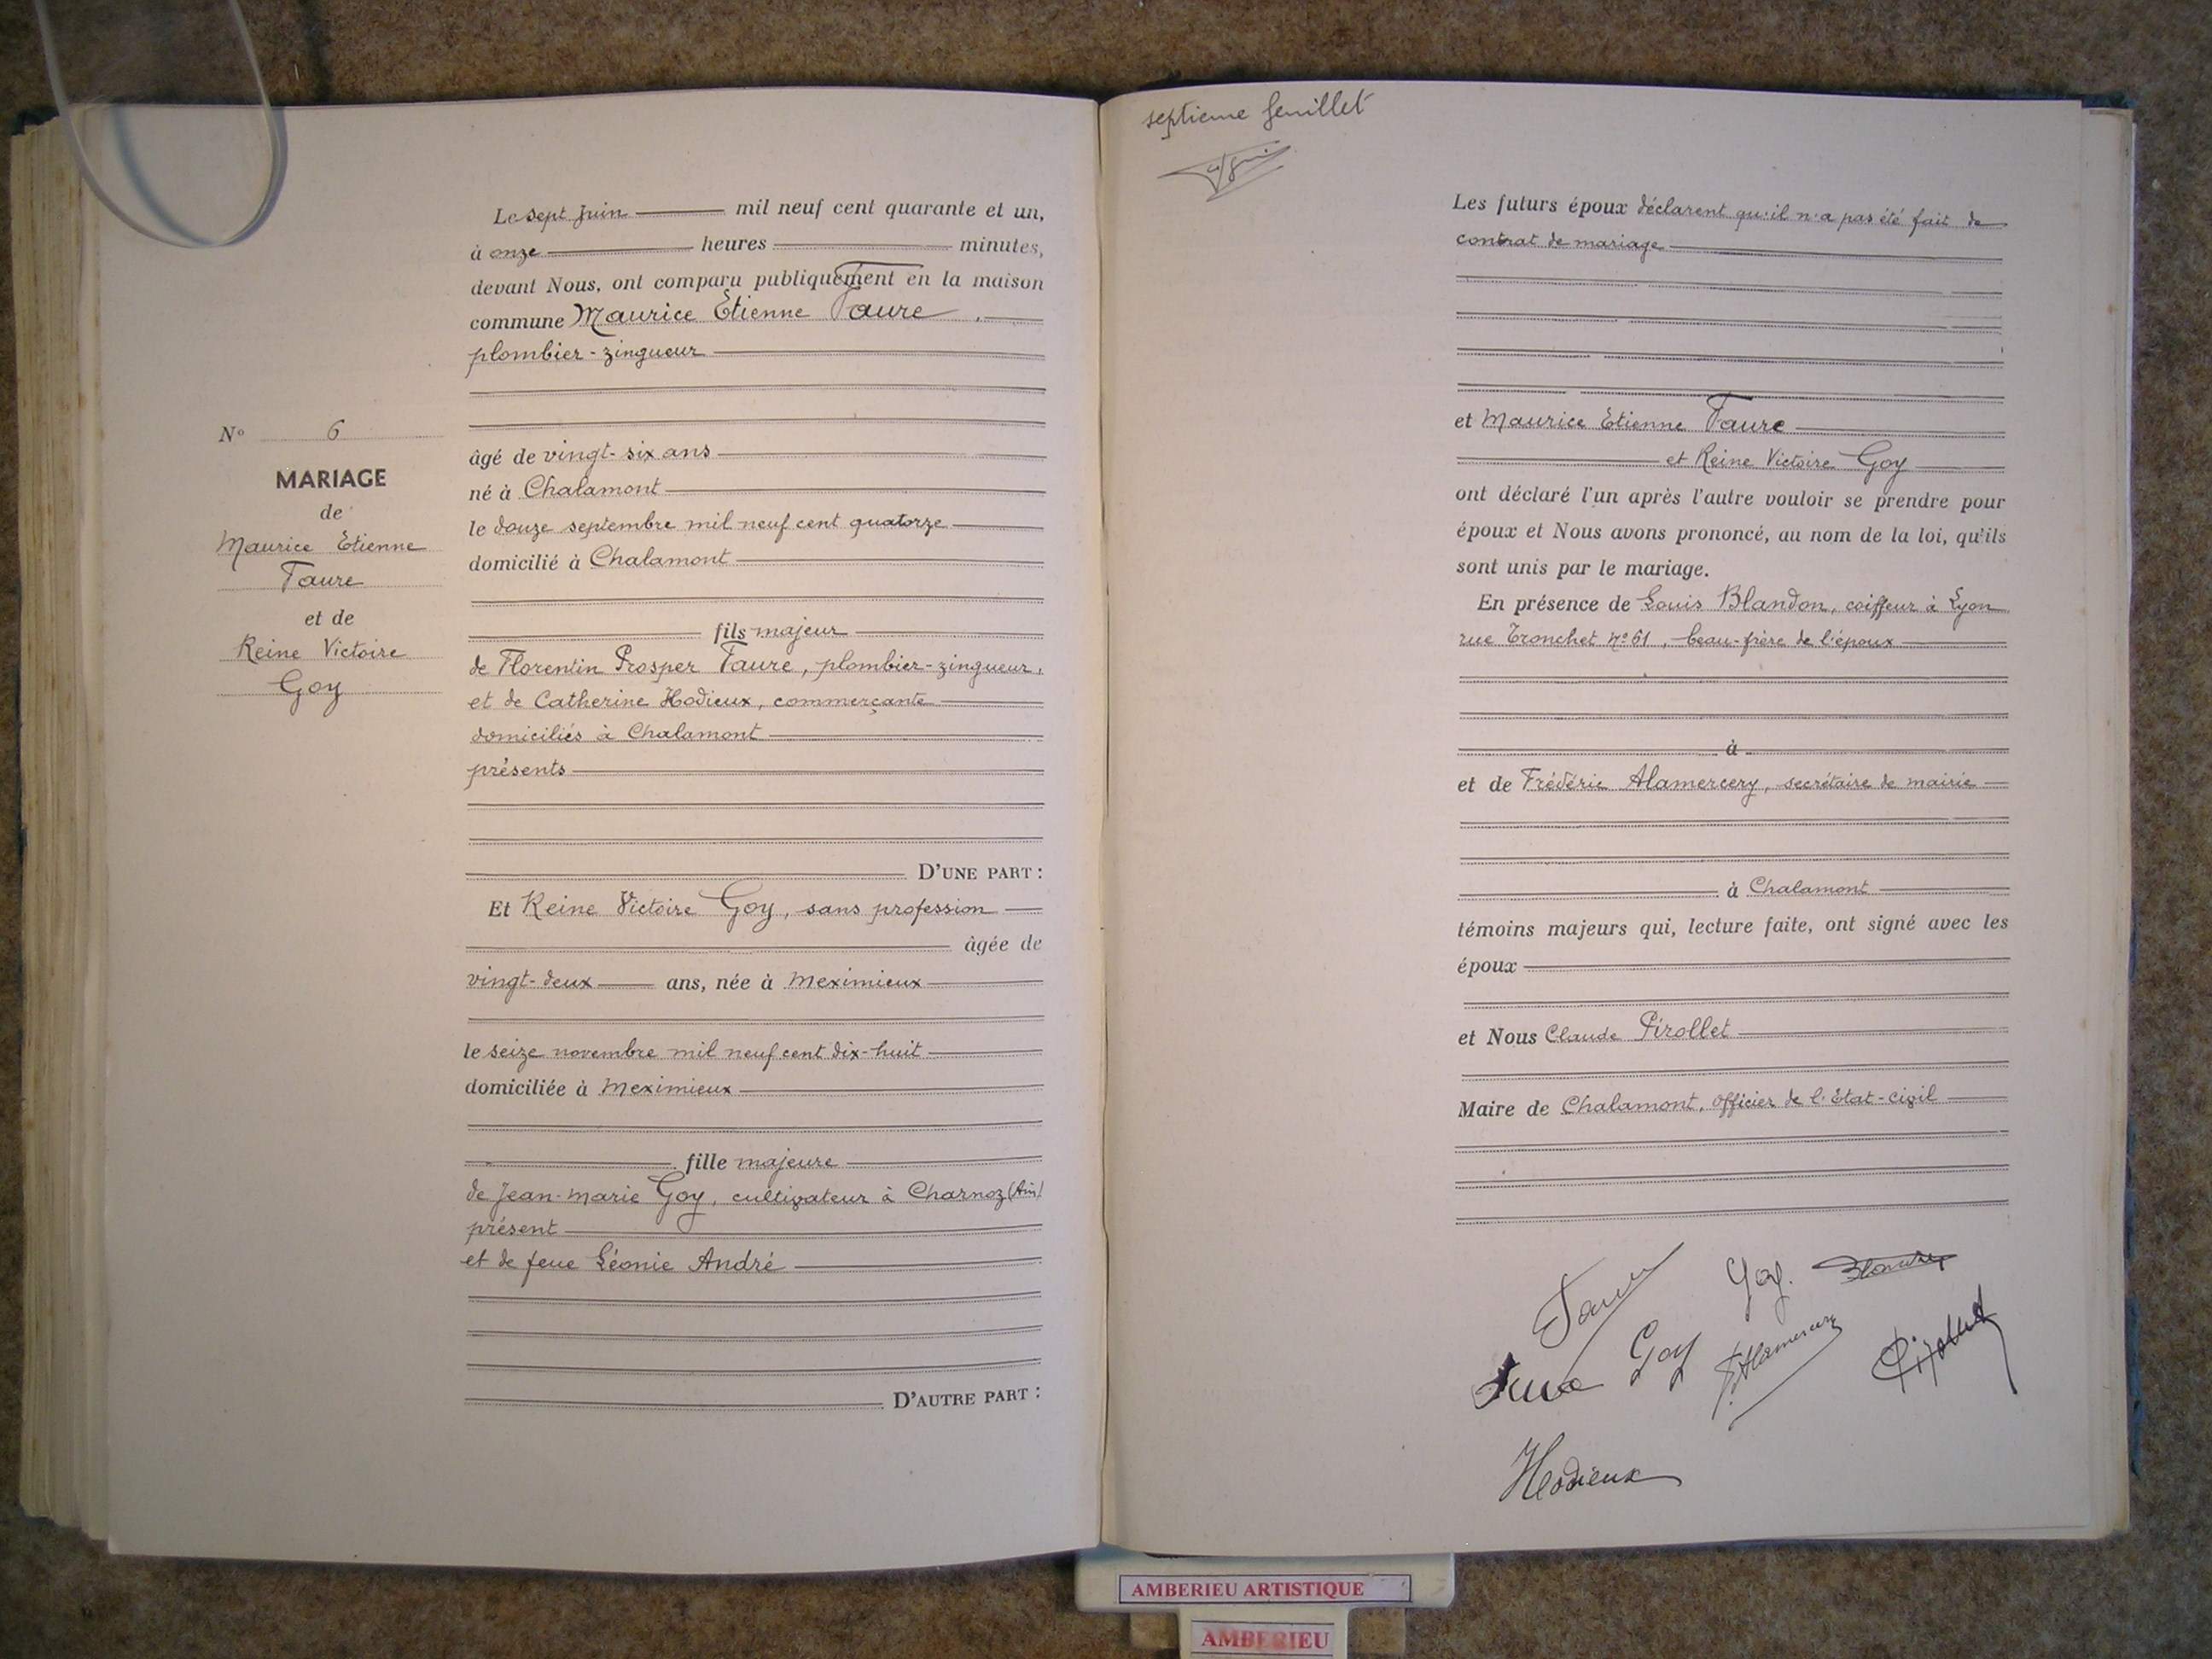 Le sept Juin mil neuf cent quarante et un,
à onze heures minutes,
devant Nous, ont comparu publiquement en la maison
commune Maurice Etienne Faure,
plombier-zingueur
âgé de vingt-six ans
né à Chalamont
le douze septembre mil neuf cent quatorze
domicilié à Chalamont
fils majeur
de Florentin Prosper Faure, plombier-zingueur,
et de Catherine Hodieux, commerçante
domiciliés à Chalamont
présents
D'UNE PART :
Et Reine Victoire Goy, sans profession
âgée de
vingt-deux ans, née à Meximieux
le seize novembre mil neuf cent dix-huit
domiciliée à Meximieux
fille majeure
de Jean-Marie Goy, cultivateur à Charnoz (Ain)
présent
et de feue Léonie André
D'AUTRE PART :
N° 6
MARIAGE
de
Maurice Etienne
Faure
et de
Reine Victoire
Goy
septieme feuillet
Les futurs époux déclarent qu'il n'a pas été fait de
contrat de mariage
et Maurice Etienne Faure
et Reine Victoire Goy
ont déclaré l'un après l'autre vouloir se prendre pour
époux et Nous avons prononcé, au nom de la loi, qu'ils
sont unis par le mariage.
En présence de Louis Blandon, coiffeur à Lyon
rue Tronchet n° 61, beau-frère de l'époux
à
et de Frédéric Alamercery, secrétaire de mairie
à Chalamont
témoins majeurs qui, lecture faite, ont signé avec les
époux
et Nous Claude Pirollet
Maire de Chalamont, officier de l'Etat-civil
Faure Goy. Blandon
Goy F. Alamercery Pirollet
Hodieux
AMBERIEU ARTISTIQUE
AMBERIEU